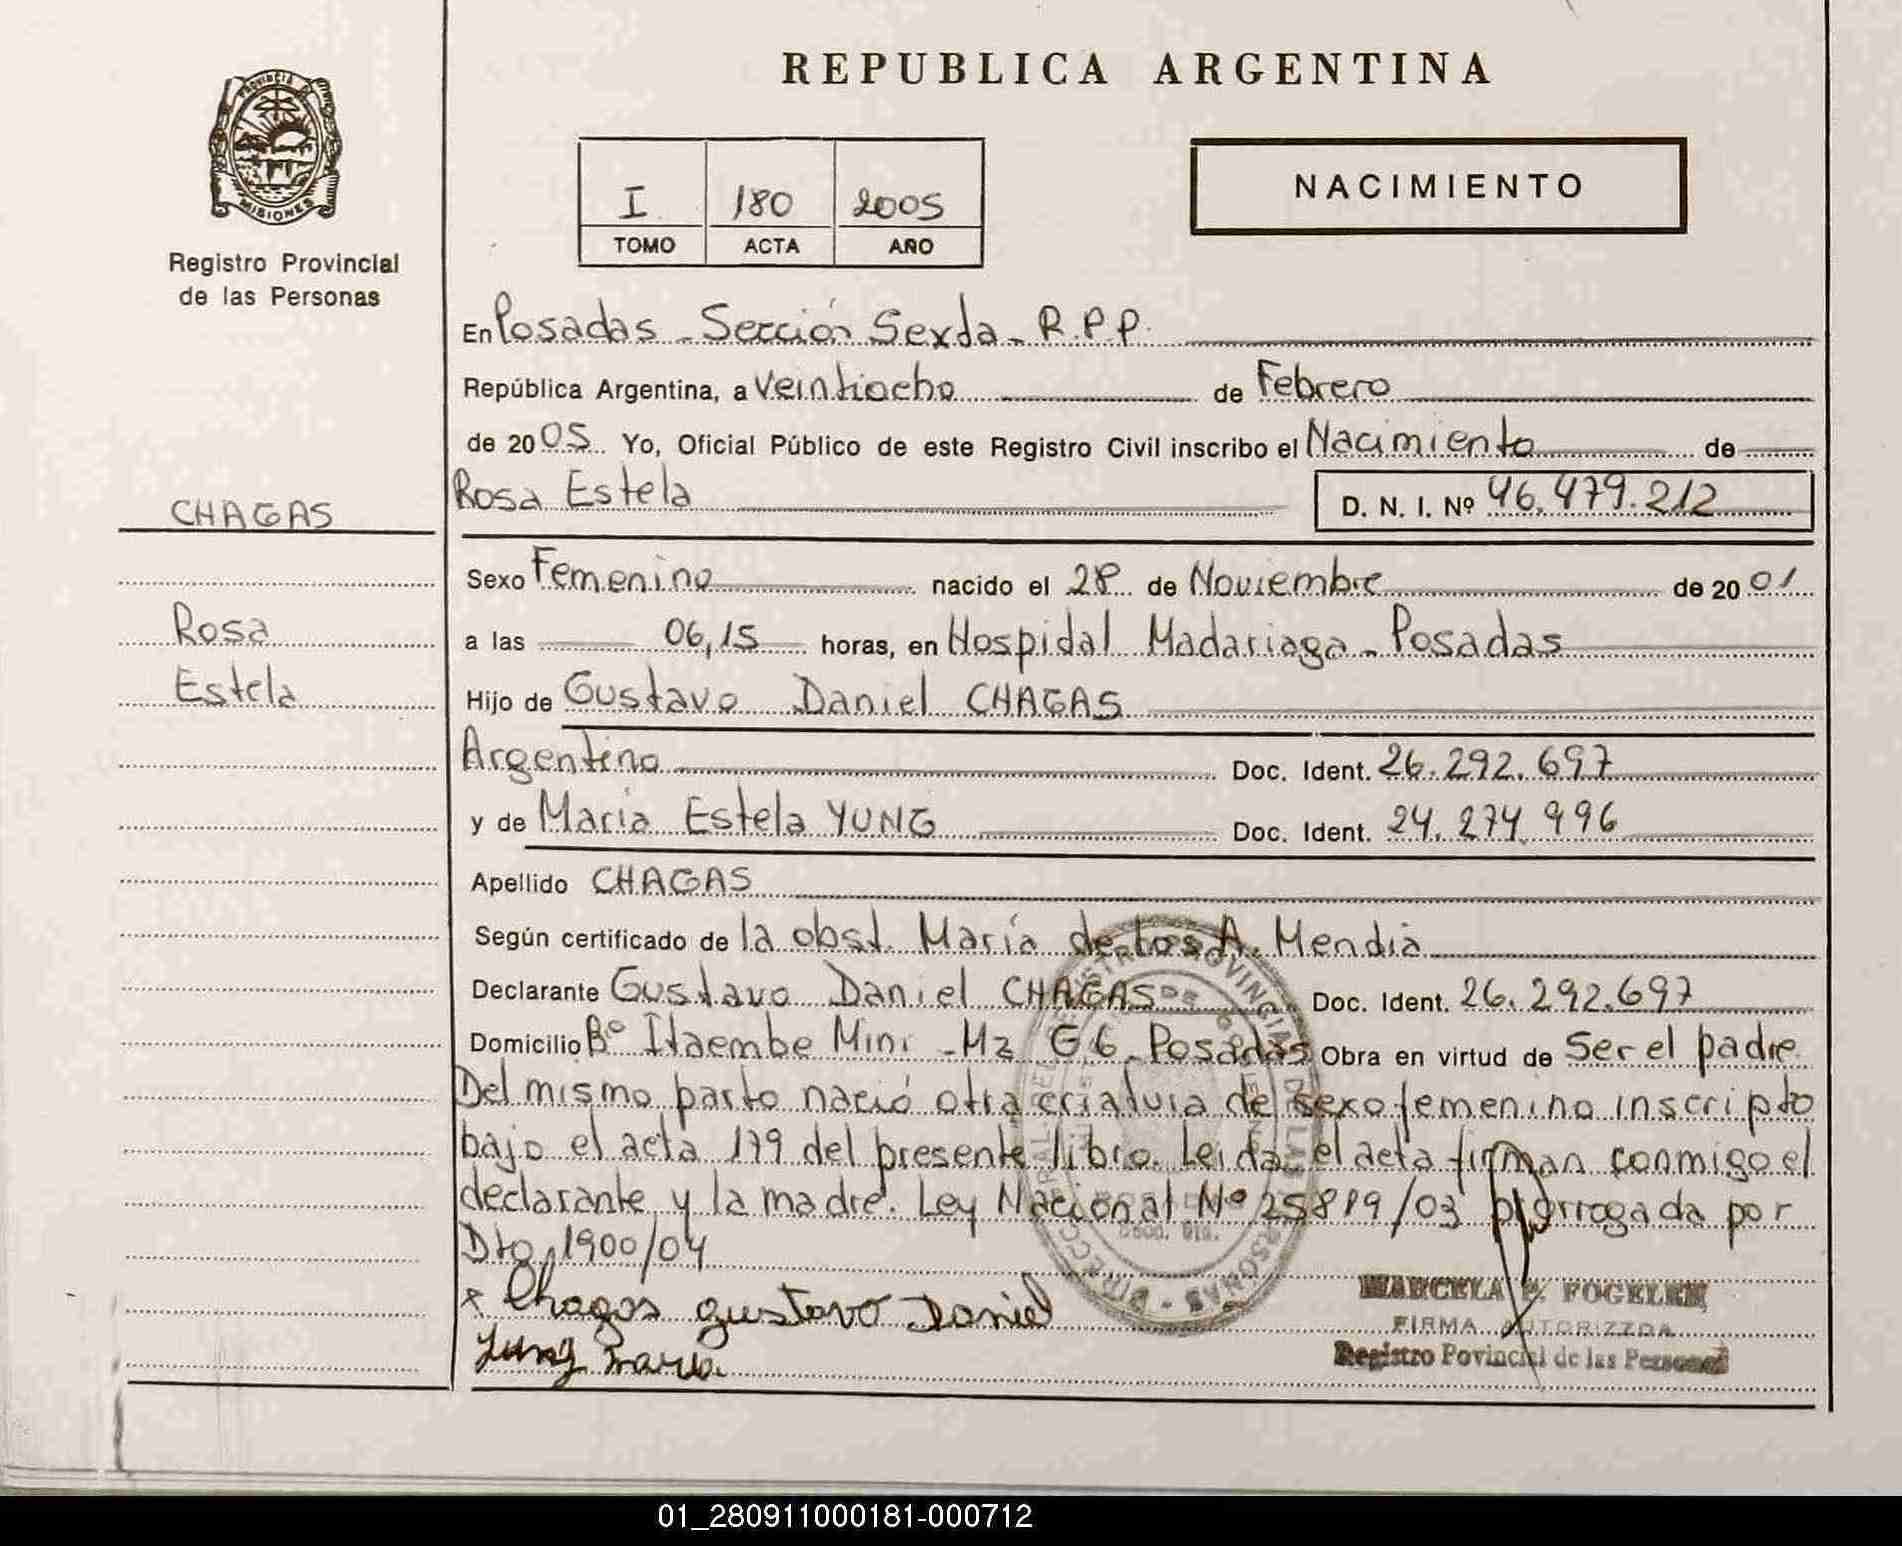 REPUBLICA ARGENTINA
PROVINCIA
MISIONES
Registro Provincial
de las Personas
I 180 2005
TOMO ACTA AÑO
NACIMIENTO
En Posadas - Sección Sexta - R.P.P.
República Argentina, a Veintiocho de Febrero
de 2005 Yo, Oficial Público de este Registro Civil inscribo el Nacimiento de
Rosa Estela D. N. I. Nº 46.479.212
CHAGAS
Rosa
Estela
Sexo Femenino nacido el 28 de Noviembre de 2001
a las 06,15 horas, en Hospital Madariaga - Posadas
Hijo de Gustavo Daniel CHAGAS
Argentino Doc. Ident. 26.292.697
y de Maria Estela YUNG Doc. Ident. 24.274.996
Apellido CHAGAS
Según certificado de la obst. María de los A. Mendia
Declarante Gustavo Daniel CHAGAS Doc. Ident. 26.292.697
Domicilio Bº Itaembe Mini - Mz G6 - Posadas Obra en virtud de Ser el padre
Del mismo parto nació otra criatura de sexo femenino inscripto
bajo el acta 179 del presente libro. Leida el acta firman conmigo el
declarante y la madre. Ley Nacional Nº 25819/03 prorrogada por
Dto 1900/04
x Chagas gustavo Daniel
Yung Maria
MARCELA FOGELER
FIRMA AUTORIZZDA
Registro Povincial de las Personas
01_280911000181-000712